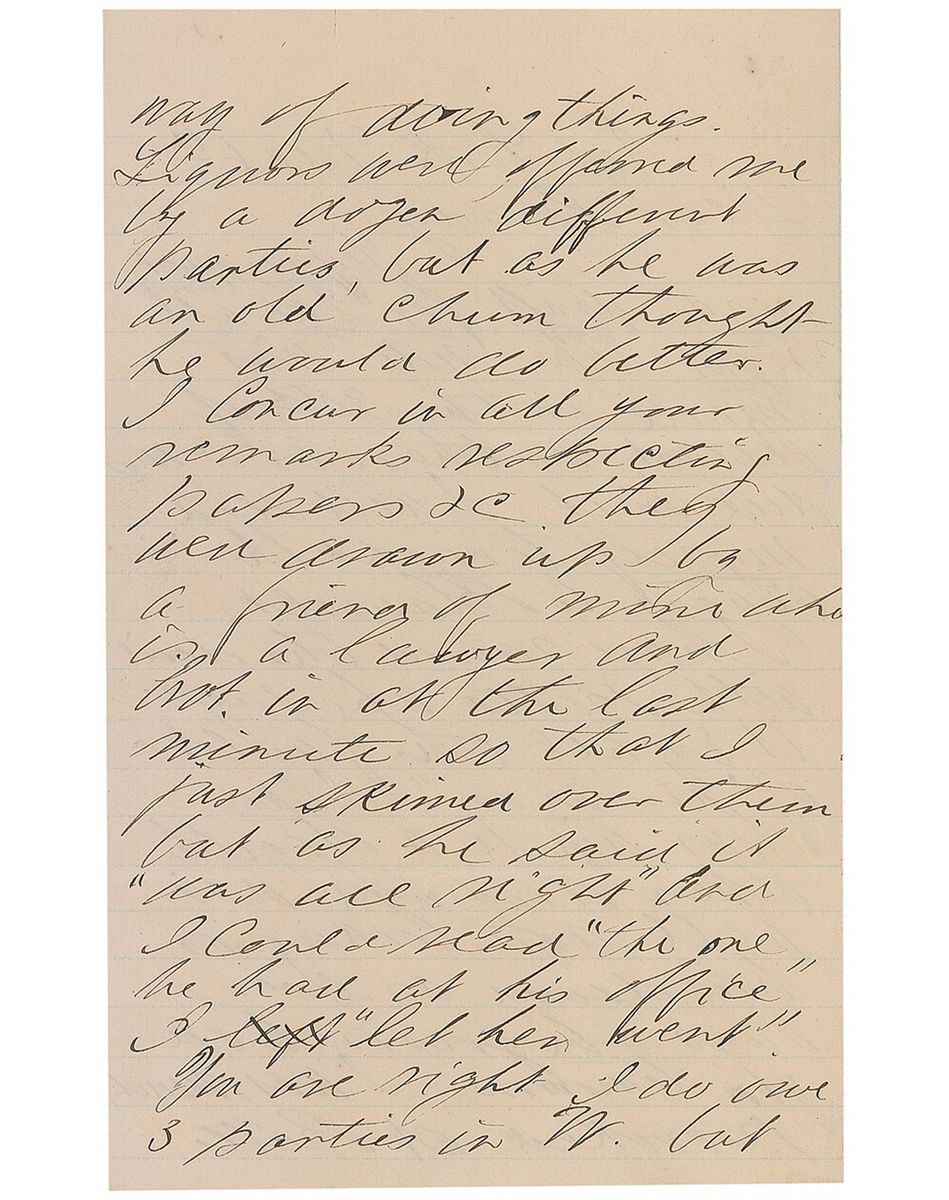 way of doing things.
Liquors were offered me
by a dozen different
parties, but as he was
an old chum thought
he would do better.
I Concur in all your
remarks respecting
papers &c. they
were drawn up by
a friend of mine who
is a lawyer and
brot. in at the last
minute so that I
just skimed over them
but as he said it
"was all right" and
I Could read "the one
he had at his office"
I left "let her went"
You are right I do owe
3 parties in W. but